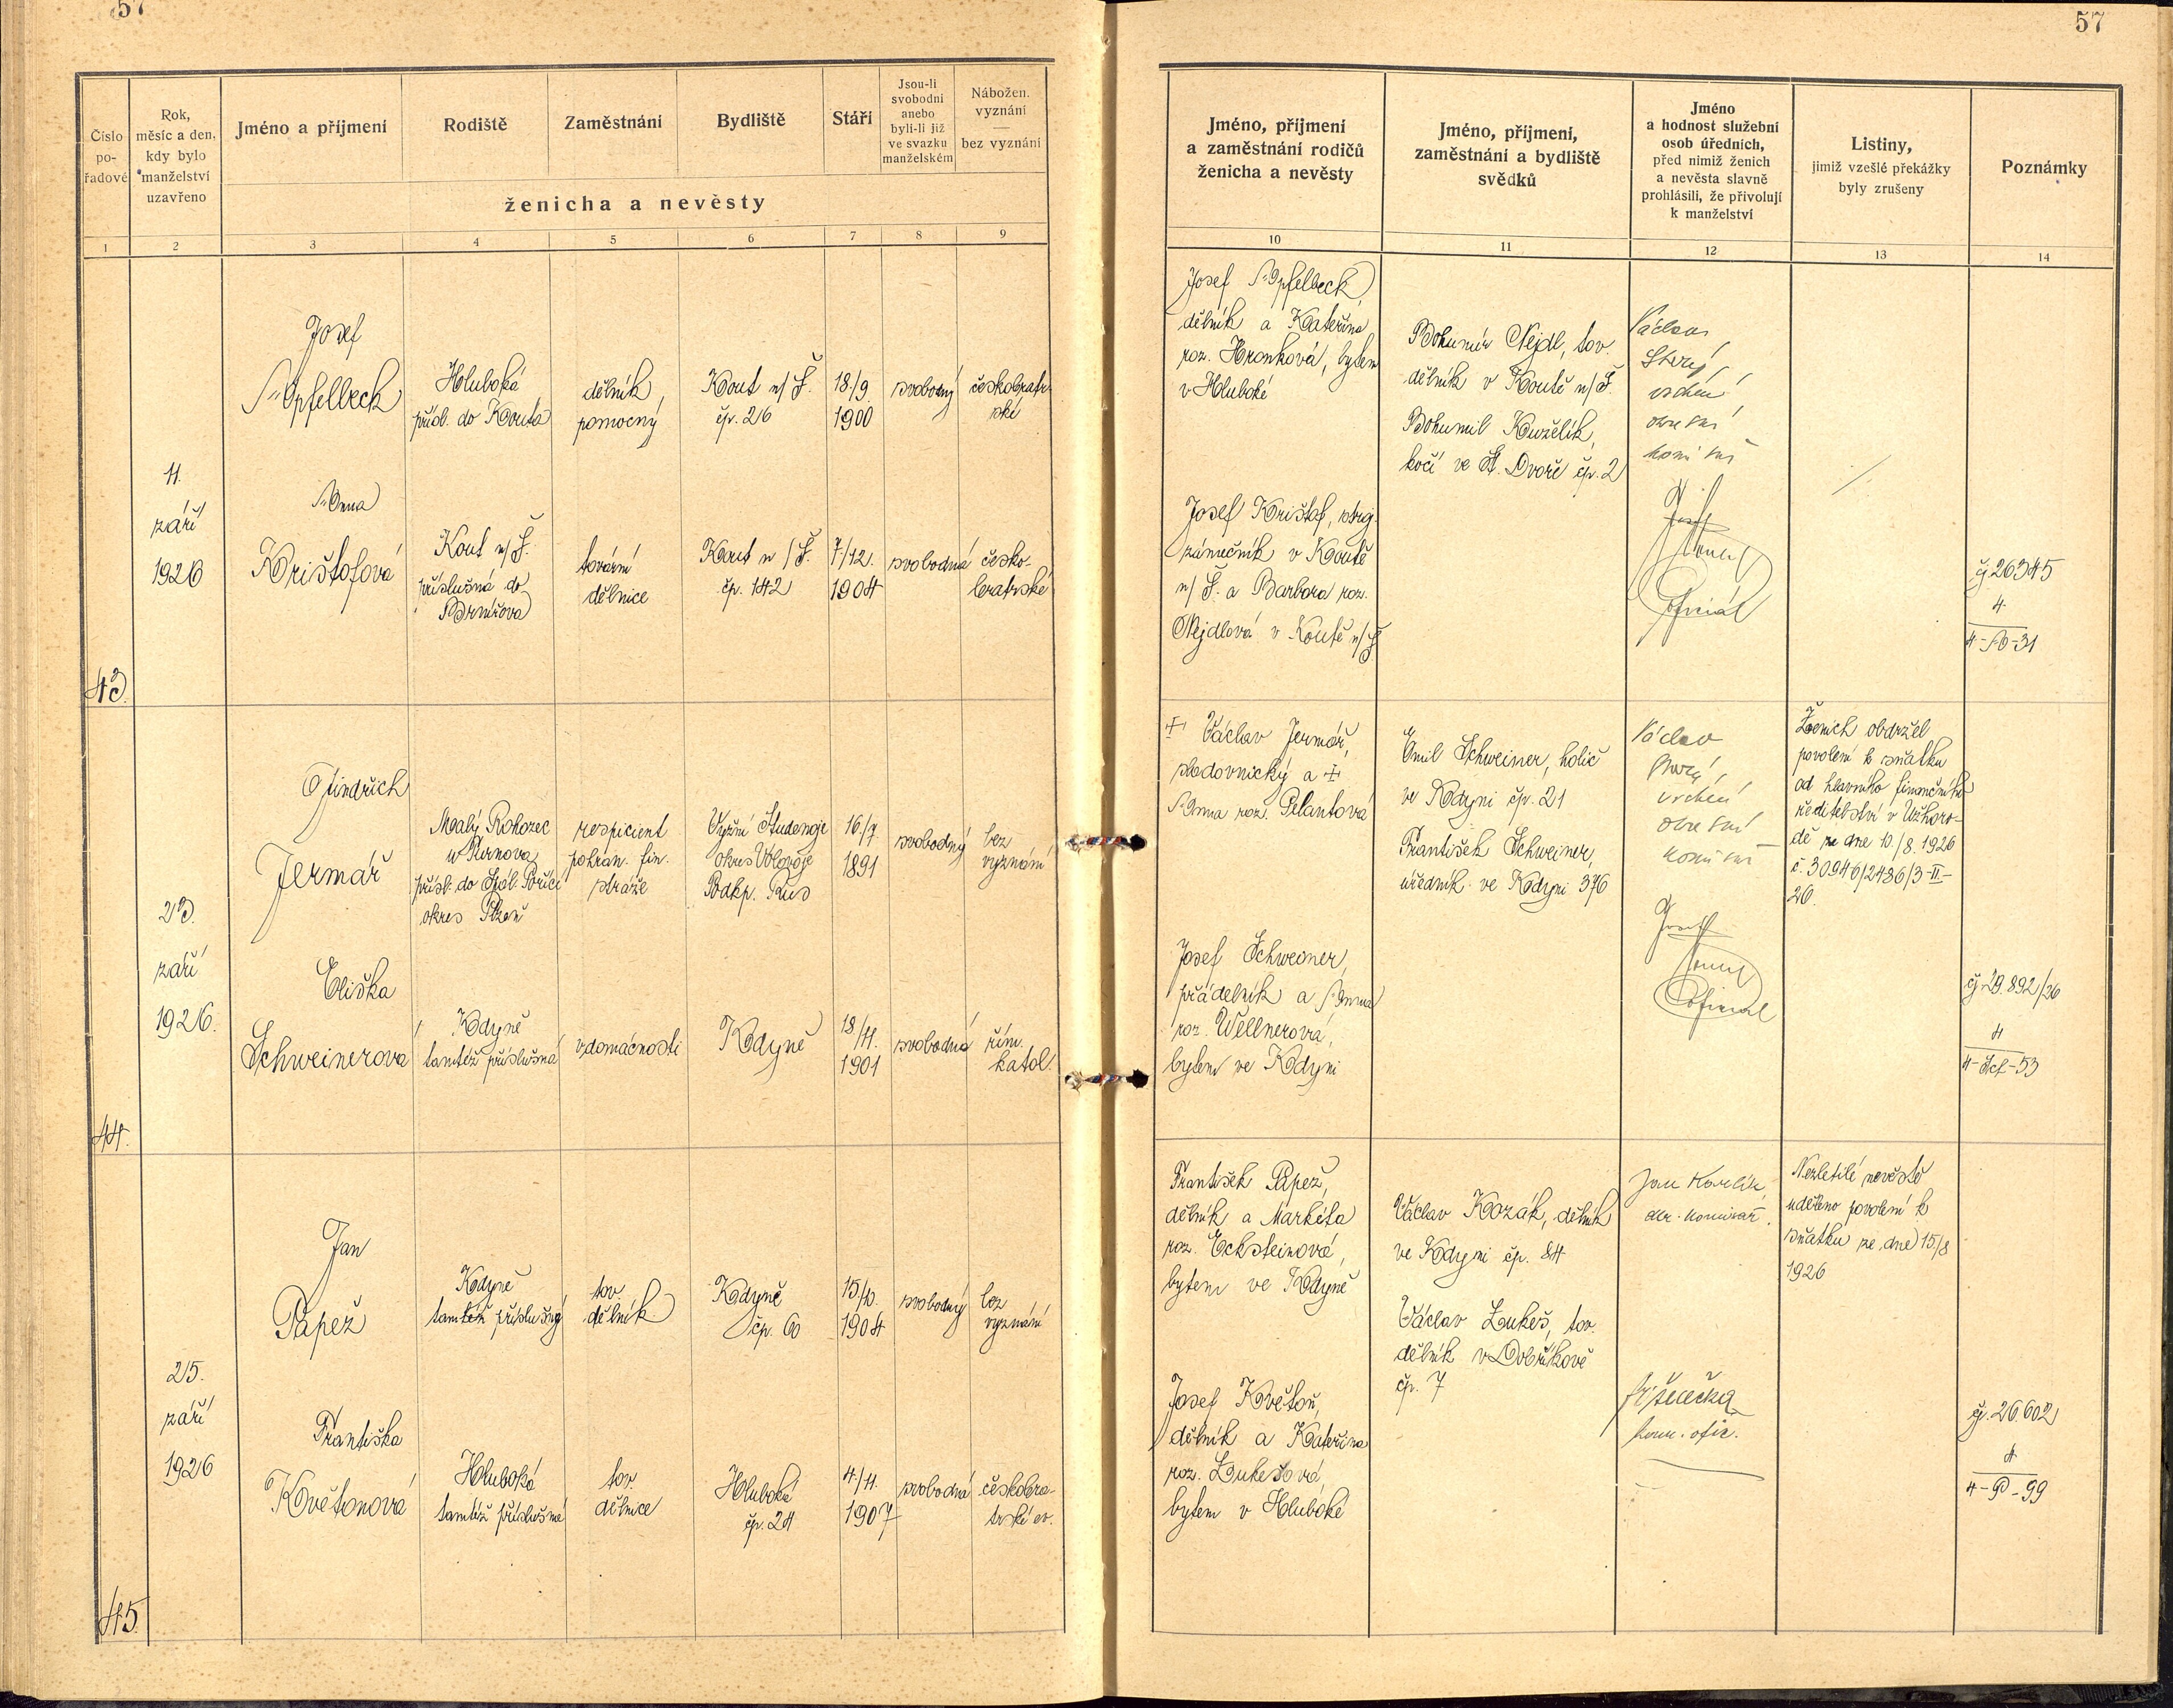 57
57
Číslo
po-
řadové
Rok,
měsíc a den,
kdy bylo
manželství
uzavřeno
Jméno a příjmení
Rodiště
Zaměstnání
Bydliště
Stáří
Jsou-li
svobodni
anebo
byli-li již
ve svazku
manželském
Nábožen.
vyznání
—
bez vyznání
ženicha a nevěsty
1 2 3 4 5 6 7 8 9
Jméno, příjmení
a zaměstnání rodičů
ženicha a nevěsty
Jméno, příjmení,
zaměstnání a bydliště
svědků
Jméno
a hodnost služební
osob úředních,
před nimiž ženich
a nevěsta slavně
prohlásili, že přivolují
k manželství
Listiny,
jimiž vzešlé překážky
byly zrušeny
Poznámky
10 11 12 13 14
43.
11.
září
1926
Josef
Apfelbeck
Hluboká
přísl. do Kouta
dělník,
pomocný
Kout n/Š.
čp. 26
18./9.
1900
svobodný
českobratr-
ské
Anna
Krištofová
Kout n/Š.
příslušná do
Brnířova
tovární
dělnice
Kout n/Š.
čp. 142
7./12.
1904
svobodná
česko-
bratrské
Josef Apfelbeck,
dělník a Kateřina
roz. Hronková, bytem
v Hluboké
Josef Krištof, stroj.
zámečník v Koutě
n/Š. a Barbora roz.
Nejdlová v Koutě n/Š.
Bohumír Nejdl, tov.
dělník v Koutě n/Š.
Bohumil Kuželík,
kočí ve St. Dvoře čp. 2
Václav
vrchní
komisař
Josef
oficiál
čj 26345
4
4-A-31
44.
23.
září
1926.
Jindřich
Jermář
Malý Rohozec
u Turnova
přísl. do Spál. Poříčí
okres Plzeň
respicient
pohran. fin.
stráže
Vyžní Študenoje
okres Volovoje
Podkp. Rus
16./7.
1891
svobodný
bez
vyznání
Eliška
Schweinerová
Kdyně
tamtéž příslušná
v domácnosti
Kdyně
18/4.
1901
svobodná
řím.
katol.
+ Václav Jermář,
sladovnický a +
Anna roz. Pelantová
Josef Schweiner,
přádelník a Anna
roz. Wellnerová,
bytem ve Kdyni
Emil Schweiner, holič
ve Kdyni čp. 21
František Schweiner,
úředník ve Kdyni 376
Václav
vrchní
komisař
Josef
oficiál
Ženich obdržel
povolení k sňatku
od hlavního finančního
ředitelství v Užhoro-
dě ze dne 10./8. 1926
č. 30946/2486/3-II-
26.
čj 29.892/26
4
4-Sch-53
45.
25.
září
1926
Jan
Papež
Kdyně
tamtéž příslušný
tov.
dělník
Kdyně
čp. 60
1904
svobodný
bez
vyznání
Františka
Květonová
Hluboká
tamtéž příslušná
tov.
dělnice
Hluboká
čp. 24
4./4.
1907
svobodná
českobra-
trské ev.
František Papež,
dělník a Markéta
roz. Ecksteinová,
bytem ve Kdyně
Josef Květoň,
dělník a Kateřina
roz. Lukešová,
bytem v Hluboké
Václav Kozák, dělník
ve Kdyni čp. 84
Václav Lukeš, tov.
dělník v Dobříkově
čp. 7
Jan Karlík,
okr. komisař.
kanc. ofic.
Nezletilé nevěstě
uděleno povolení k
sňatku ze dne 15/8
1926
čj. 26602
4
4-P-99